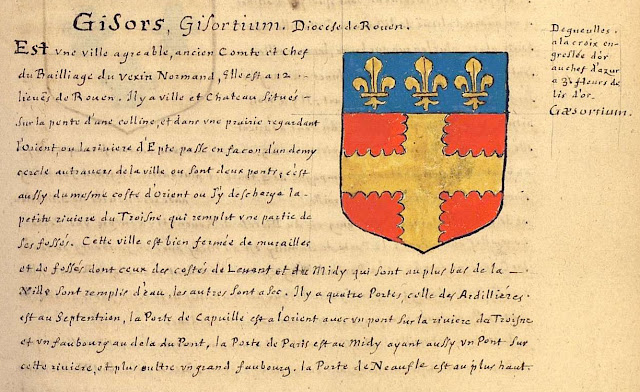 Gisors, Gisortium. Diocese de Rouen.
Est vne ville agreable, ancien Comte et Chef
du Bailliage du vexin Normand, Elle est a 12
lieuës de Rouen. Il y a ville et Chateau situés
sur la pente d'une colline, et dans vne prairie regardant
l'Orient, ou la riviere d'Epte passe en façon d'un demy
cercle autravers de la ville ou sont deux ponts, c'est
aussy du mesme costé d'Orient ou s'y descharge la
petite riviere du Troisne qui remplit vne partie de
ses fossés. Cette ville est bien fermée de murailles
et de fossés dont ceux des costés de Leuant et du Midy qui sont au plus bas de la
Ville sont remplis d'eau, les autres sont a sec. Il y a quatre Portes, celle des Ardilliéres
est au Septentrion, la Porte de Capuille est a l'Orient avec vn pont sur la riviere du Troisne
et vn faubourg au dela du Pont, la Porte de Paris est au Midy ayant aussy vn Pont sur
cette riviere, et plus oultre vn grand faubourg. la Porte de Neaufle est au plus haut.
De gueulles
a la croix en-
greslée d'or
au chef d'azur
a 3 fleurs de
lis d'or.
Gæsortium.